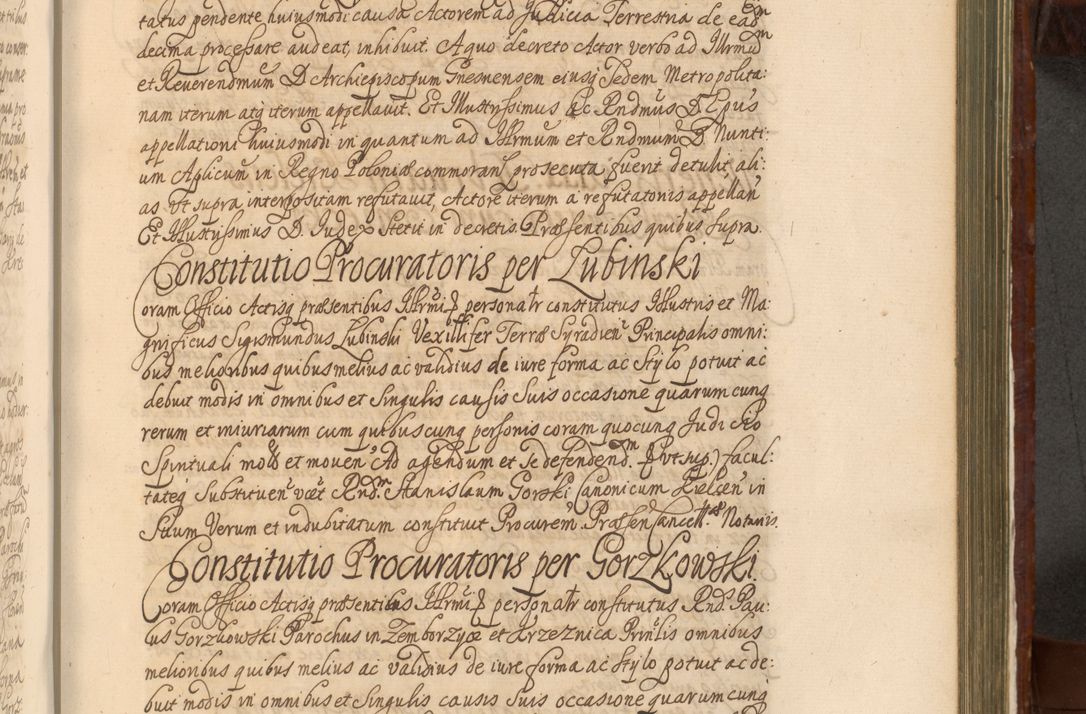 tatus pendente huiusmodi causa Actorem ad Judicia Terrestria de ead em
decima processare audeat, inhibuit. A quo decreto Actor verbo ad Illrmũ
et Reverendmum D Archiepiscopum Gnesnensem eiusq Sedem Metropolita:
nam iterum atq iterum appellavit. Et Illustrissimus ac Rndmus D Epus
appellationi huiusmodi in quantum ad Illrmum et Rndmum D. Nunti:
um Aplicum in Regno Poloniæ commoran prosecuta fuerit detulit ali:
as ut supra interpositam refutavit, Actore iterum a refutatoris appellan
Et Illustrissimus D. Judex Stetit in decretis. Præsentibus quibus supra.
Constitutio Procuratoris per Lubinski
Coram Officio Actisq præsentibus Illrmi personalr constitutus Illustris et Ma:
gnificus Sigismundus Lubinski Vexillifer Terræ Syradien Principalis omni:
bus melioribus quibus melius ac validius de iure forma ac Stylo potuit ac
debuit modis in omnibus et singulis causis suis occasione quarumcunq
rerum et iniuriarum cum quibuscunq personis coram quocunq Judicio
Spirituali motis et moven Ad agendum et se defendend m (ut sup.) facul:
tateq Substituen vcet Rnd. m Stanislaum Gorski Canonicum Kielcen in
Suum Verum et indubitatum constituit Procurem. Præsen Cancell. Notariis.
Constitutio Procuratoris per Gorzkowski.
Coram Officio Actisq præsentibus Illrmi personalr constitutus Rnds Pau:
lus Gorzkowski Parochus in Zemborzyce et Krzeznica Prinlis omnibus
melioribus quibus melius ac validius de iure forma ac stylo potuit ac de:
buit modis in omnibus et singulis causis suis occasione quarumcunq